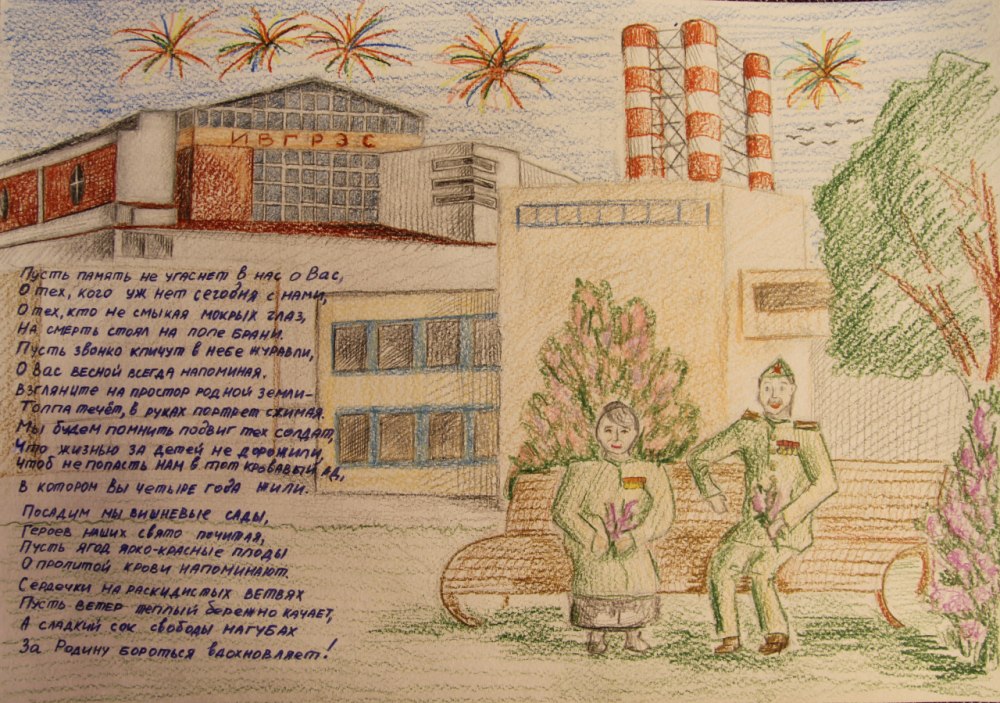 ИВГРЭС
Пусть память не угаснет в нас о Вас,
О тех, кого уж нет сегодня с нами,
О тех, кто не смыкая мокрых глаз,
На смерть стоял на поле брани.
Пусть звонко кличут в небе журавли,
О Вас весной всегда напоминая.
Взгляните на простор родной земли–
Толпа течёт, в руках портрет сжимая.
Мы будем помнить подвиг тех солдат,
Что жизнью за детей не дорожили,
Чтоб не попасть нам в тот кровавый ад,
В котором Вы четыре года жили.
Посадим мы вишневые сады,
Героев наших свято почитая,
Пусть ягод ярко-красные плоды
О пролитой крови напоминают.
Сердечки на раскидистых ветвях
Пусть ветер теплый бережно качает,
А сладкий сок свободы на губах
За Родину бороться вдохновляет!